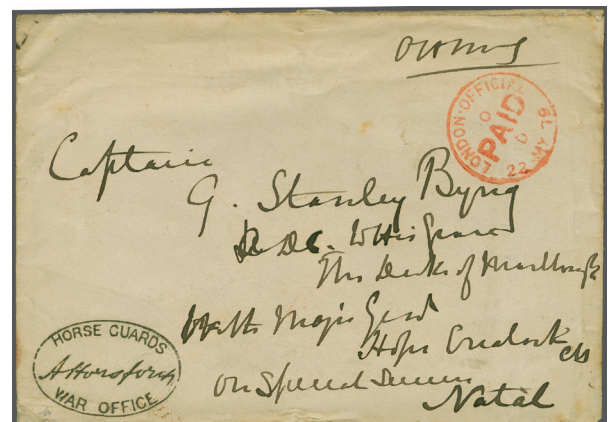 OHMS
LONDON·OFFICIAL
PAID
22
Captain
G. Stanley Byng
A.D.C. to His Grace
The Duke of Marlborough
With Major Genl
Hope Crealock CB
On Special Service
Natal
HORSE GUARDS
WAR OFFICE